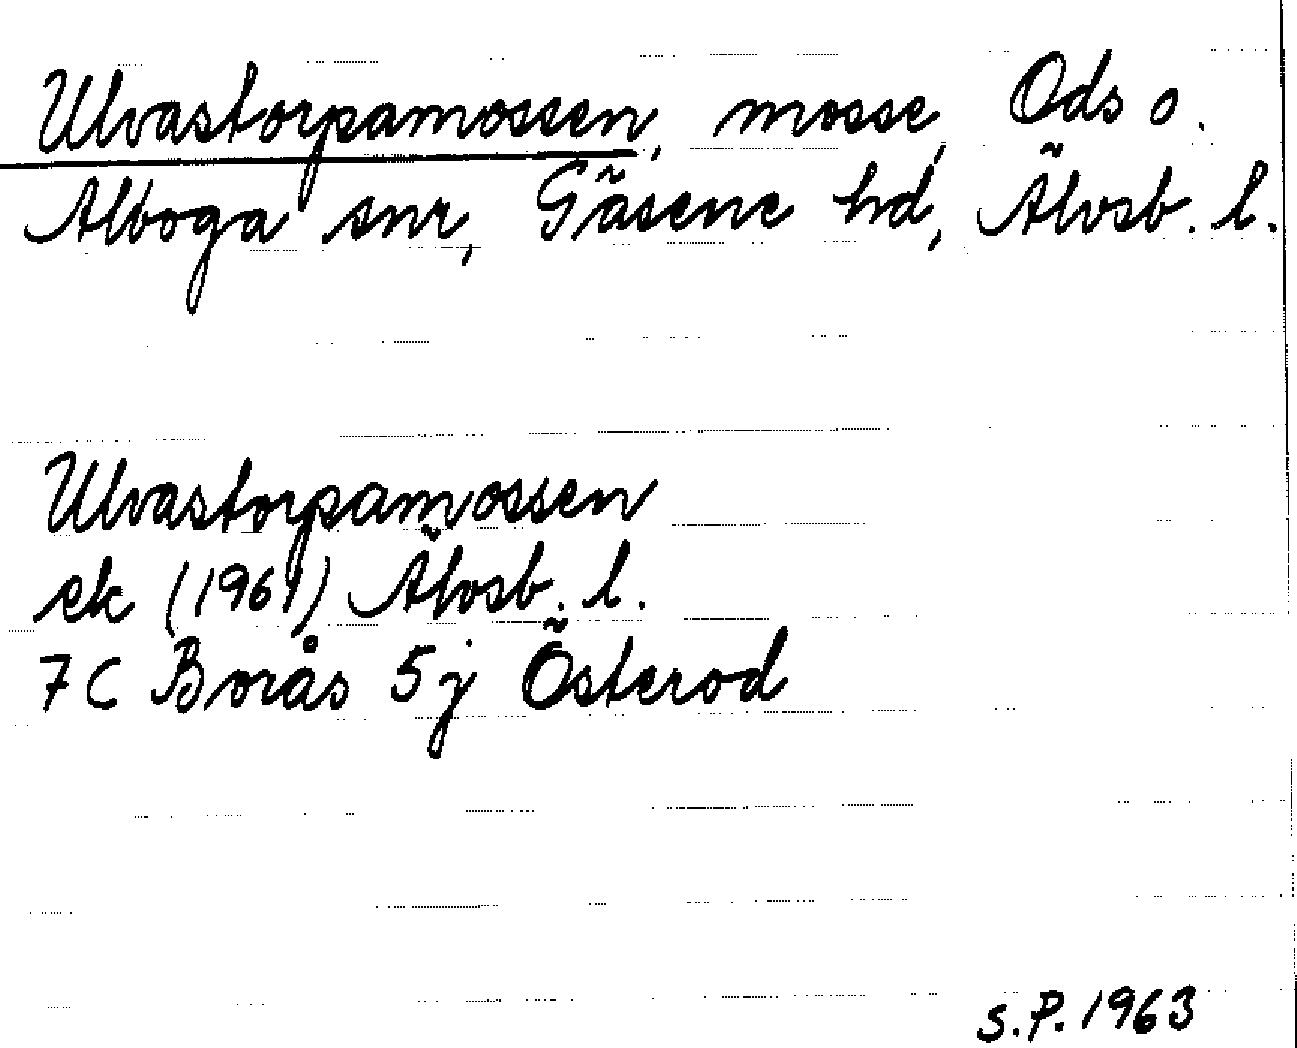 Ulvastorpamossen, mosse, Ods o.
Alboga snr, Gäsene hd, Älvsb. l.
Ulvastorpamossen
ek (1961) Älvsb. l.
7C Borås 5j Österod
S.P. 1963